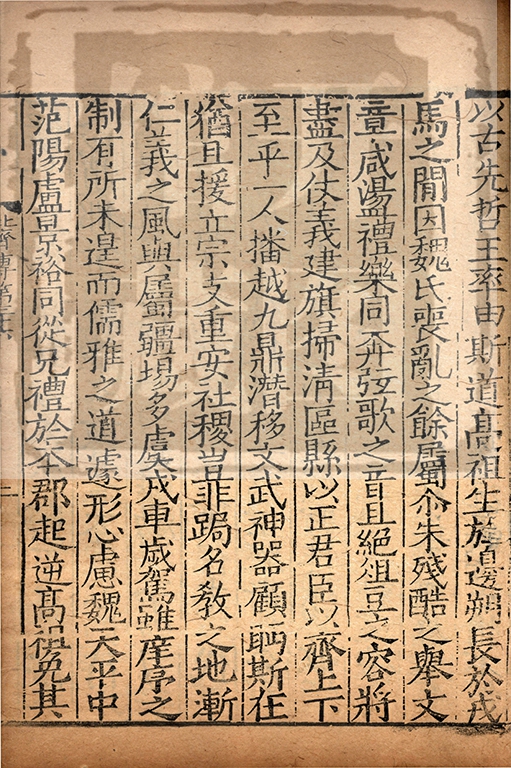 以古先哲王率由斯道高祖生於邊朔長於戎
馬之間因魏氏喪亂之餘屬尒朱殘酷之舉文
章咸盪禮樂同奔弦歌之音且絕俎豆之容將
盡及仗義建旗掃清區縣以正君臣以齊上下
至乎一人播越九鼎潛移文武神器顧眄斯在
猶且援立宗支重安社稷豈非跼名教之地漸
仁義之風與屬疆場多虞戎車歲駕雖庠序之
制有所未遑而儒雅之道遽形心慮魏天平中
范陽盧景裕同從兄禮於本郡起逆高祖免其